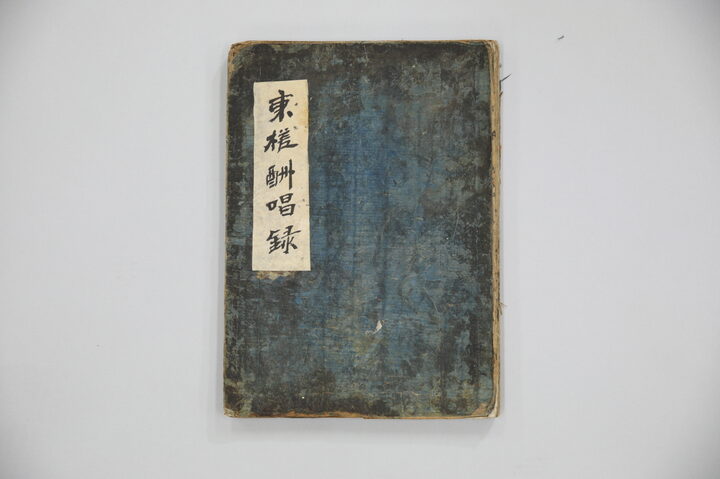 東槎酬唱録